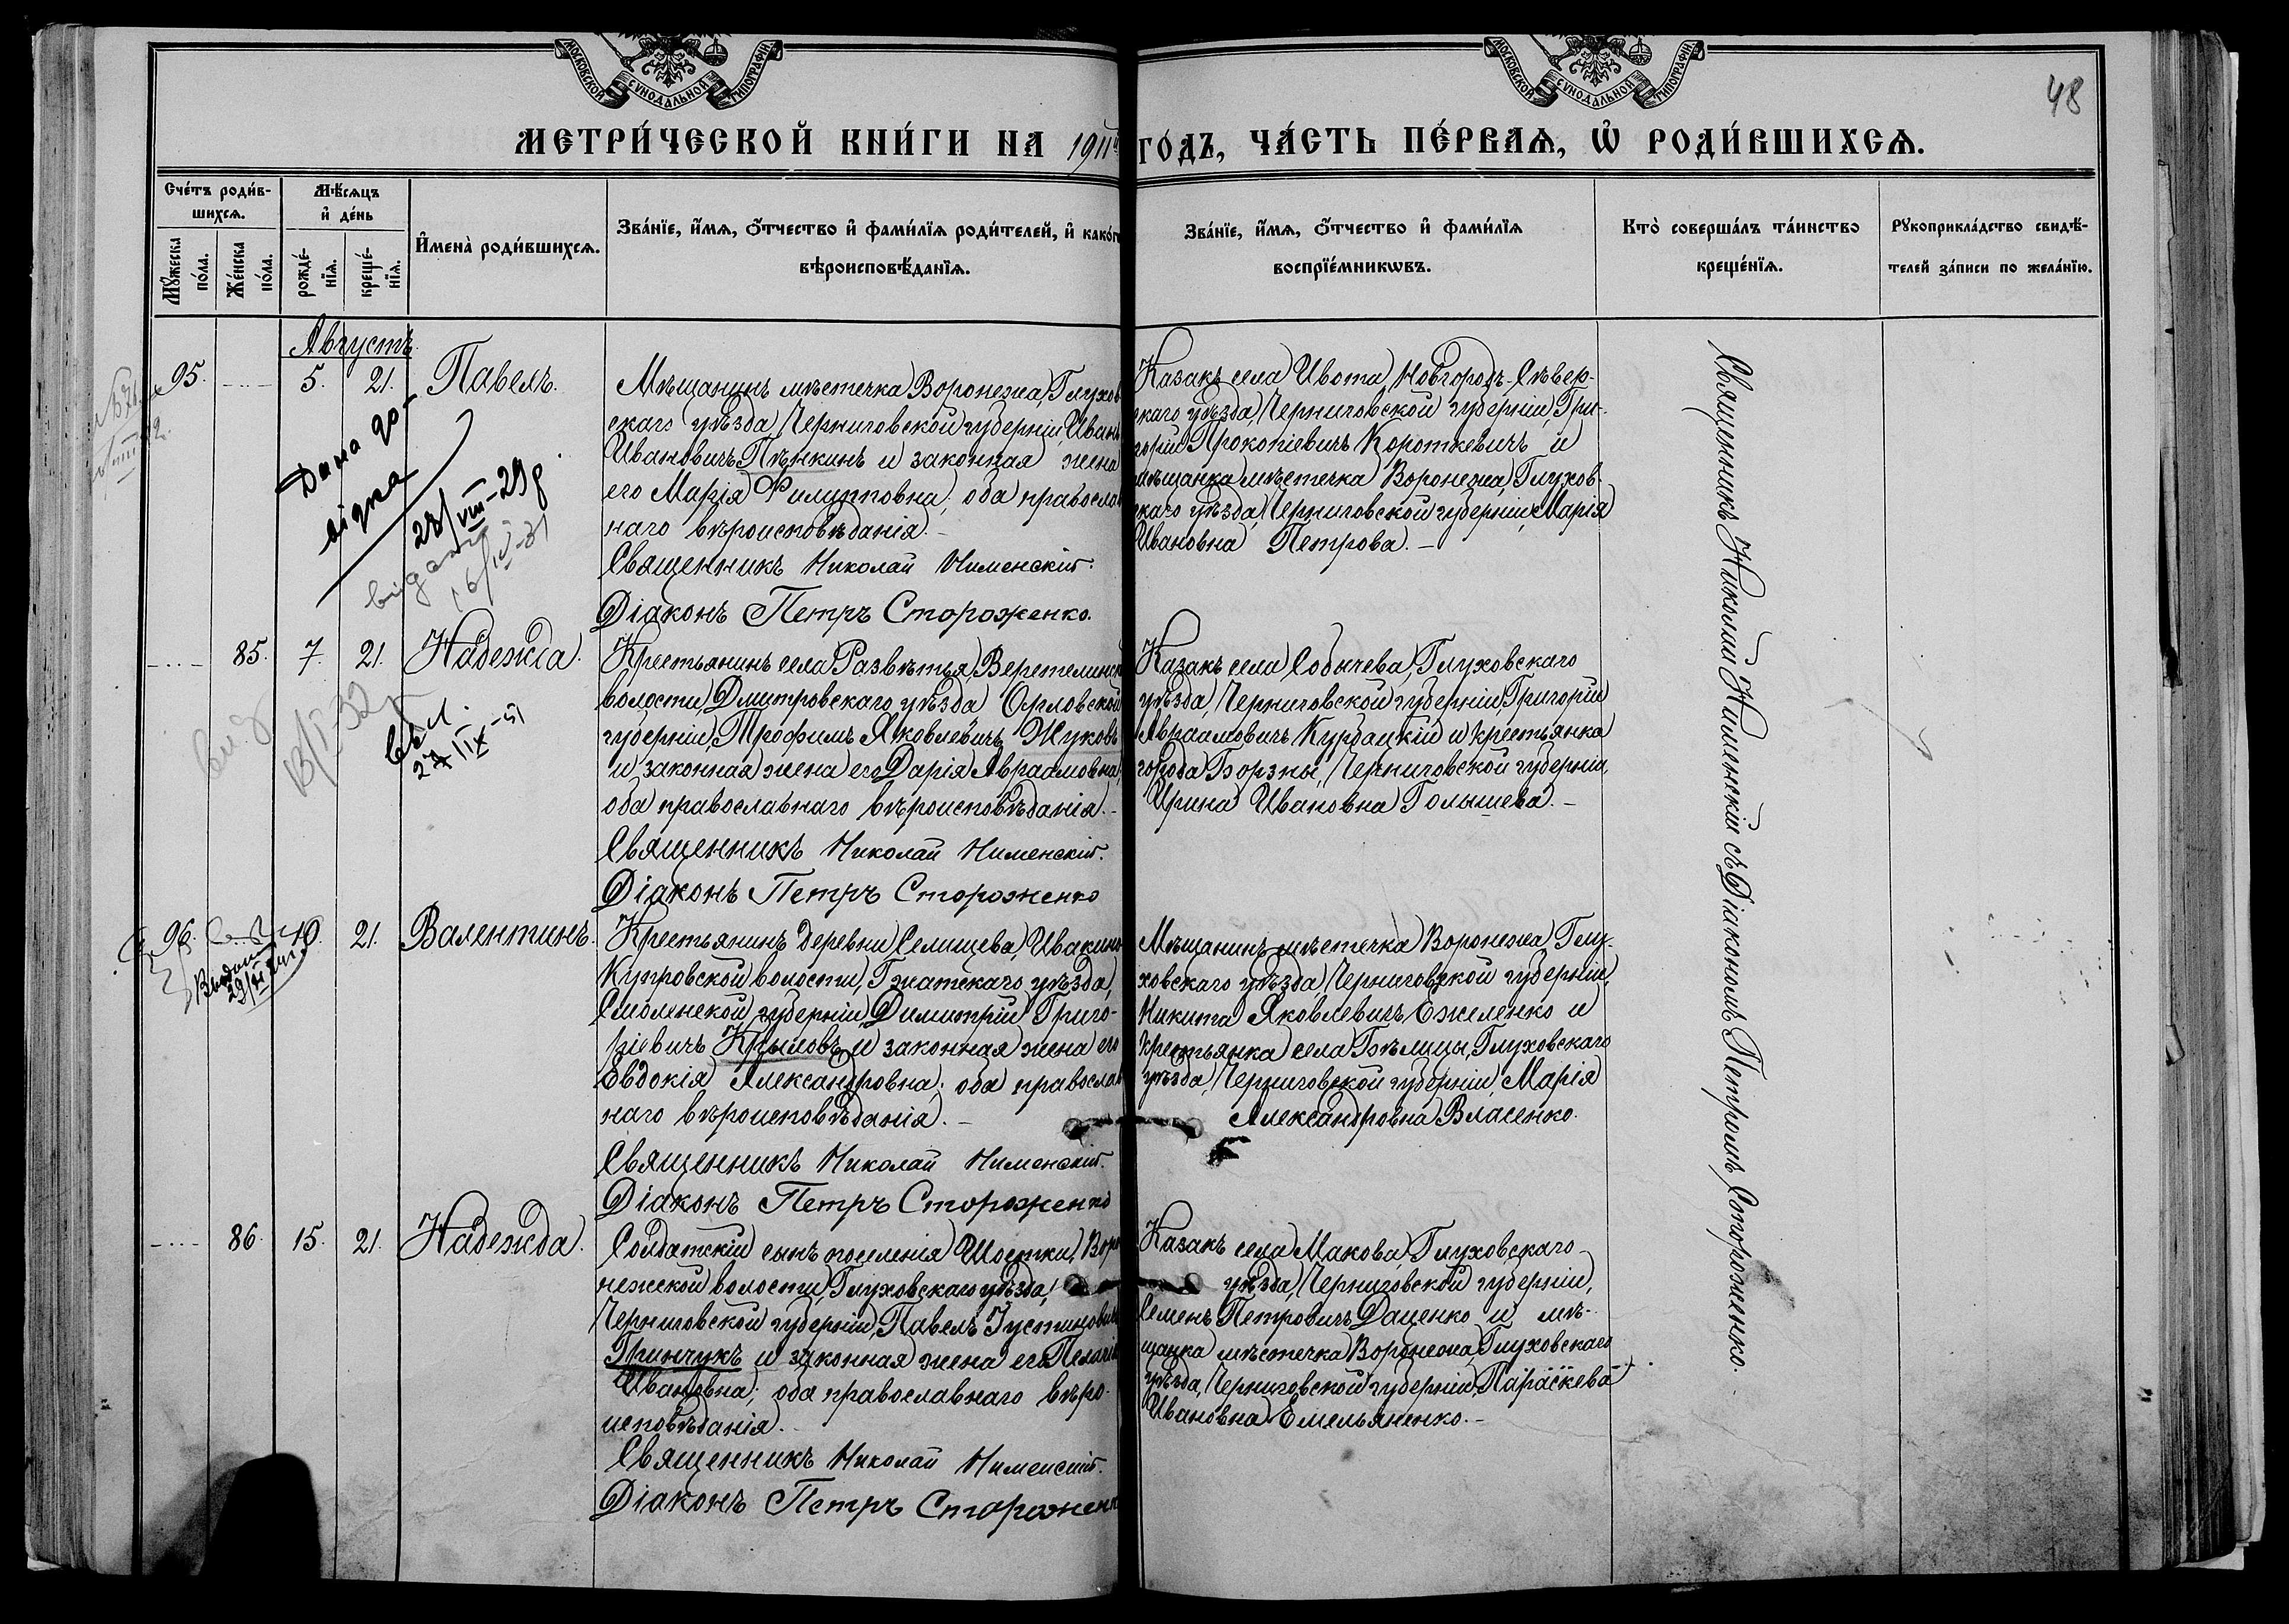 МОСКОВСКОЙ СѴНОДАЛЬНОЙ ТИПОГРАФІИ
МОСКОВСКОЙ СѴНОДАЛЬНОЙ ТИПОГРАФІИ
48
МЕТРИ́ЧЕСКОЙ КНИ́ГИ НА 1911й ГОДЪ, ЧА́СТЬ ПЕ́РВАѦ, Ѡ РОДИ́ВШИХСѦ.
Сче́тъ роди́в-
шихсѧ.
Мꙋжеска по́ла.
Же́нска по́ла.
Мѣ́сѧцъ
и҆ де́нь
рожде́-
нїѧ.
креще́-
нїѧ.
И҆мена̀ роди́вшихсѧ.
Зва́нїе, и҆́мѧ, ѻ҆́тчество и҆ фами́лїѧ роди́телей, и҆ како́г
вѣроисповѣ́данїѧ.
Зва́нїе, и҆́мѧ, ѻ҆́тчество и҆ фами́лїѧ
воспрїе́мникѡвъ.
Кто̀ соверша́лъ та́инство
креще́нїѧ.
Рꙋкоприкла́дство свидѣ́-
телей за́писи по жела́нїю.
Августъ.
95.
5. 21. Павелъ.
Мѣщанинъ мѣстечка Воронежа, Глухов
скаго уѣзда Черниговской губерніи, Иванъ
Ивановичъ Пѣнкинъ и законная жена
его Марія Филипповна; оба православ
наго вѣроисповѣданія.-
Священникъ Николай Нименскій.
Діаконъ Петръ Стороженко.
Казакъ села Ивота, Новгородъ-Сѣвер-
скаго уѣзда, Черниговской губерніи, Гри-
горій Прокопіевичъ Короткевичъ и
мѣщанка мѣстечка Воронежа, Глухов-
скаго уѣзда, Черниговской губерніи, Марія
Ивановна Петрова.-
Дана до-
відка
23/VIII-29р
видано
16/IV-31
85. 7. 21. Надежда.
Крестьянинъ села Развѣтья, Веретенинск
волости, Дмитровскаго уѣзда Орловской
губерніи, Трофимъ Яковлевичъ Жуковъ
и законная жена его Дарія Авраамовна;
оба православнаго вѣроисповѣданія.-
Священникъ Николай Нименскій.
Діаконъ Петръ Стороженко
Казакъ села Собичева, Глуховскаго
уѣзда, Черниговской губерніи, Григорій
Авраамовичъ Курбацкій и крестьянка
города Борзны, Черниговской губерніи,
Ирина Ивановна Голышева.-
вид
13/I-32
27/IX-51
96. 10. 21. Валентинъ.
Крестьянинъ деревни Селищева, Ивакино-
Купровской волости, Гжатскаго уѣзда,
Смоленской губерніи, Димитрій Григо-
ріевичъ Крыловъ и законная жена его
Евдокія Александровна; оба православ
наго вѣроисповѣданія.-
Священникъ Николай Нименскій.
Діаконъ Петръ Стороженко
Мѣщанинъ мѣстечка Воронежа Глу-
ховскаго уѣзда, Черниговской губерніи,
Никита Яковлевичъ Ежеленко и
крестьянка села Бѣлицы, Глуховскаго
уѣзда, Черниговской губерніи, Марія
Александровна Власенко.
86. 15. 21. Надежда.
Солдатскій сынъ поселенія Шостки, Воро
нежской волости, Глуховскаго уѣзда,
Черниговской губерніи, Павелъ Іустиновичъ
Гринчукъ и законная жена его Пелагія
Ивановна; оба православнаго вѣро-
исповѣданія.-
Священникъ Николай Нименскій.
Діаконъ Петръ Стороженк
Казакъ села Макова, Глуховскаго
уѣзда, Черниговской губерніи,
Семенъ Петровичъ Даценко и мѣ-
щанка мѣстечка Воронежа, Глуховскаго
уѣзда, Черниговской губерніи, Параскева
Ивановна Емельяненко.-
Священникъ Николай Нименскій съ Діакономъ Петромъ Стороженко.